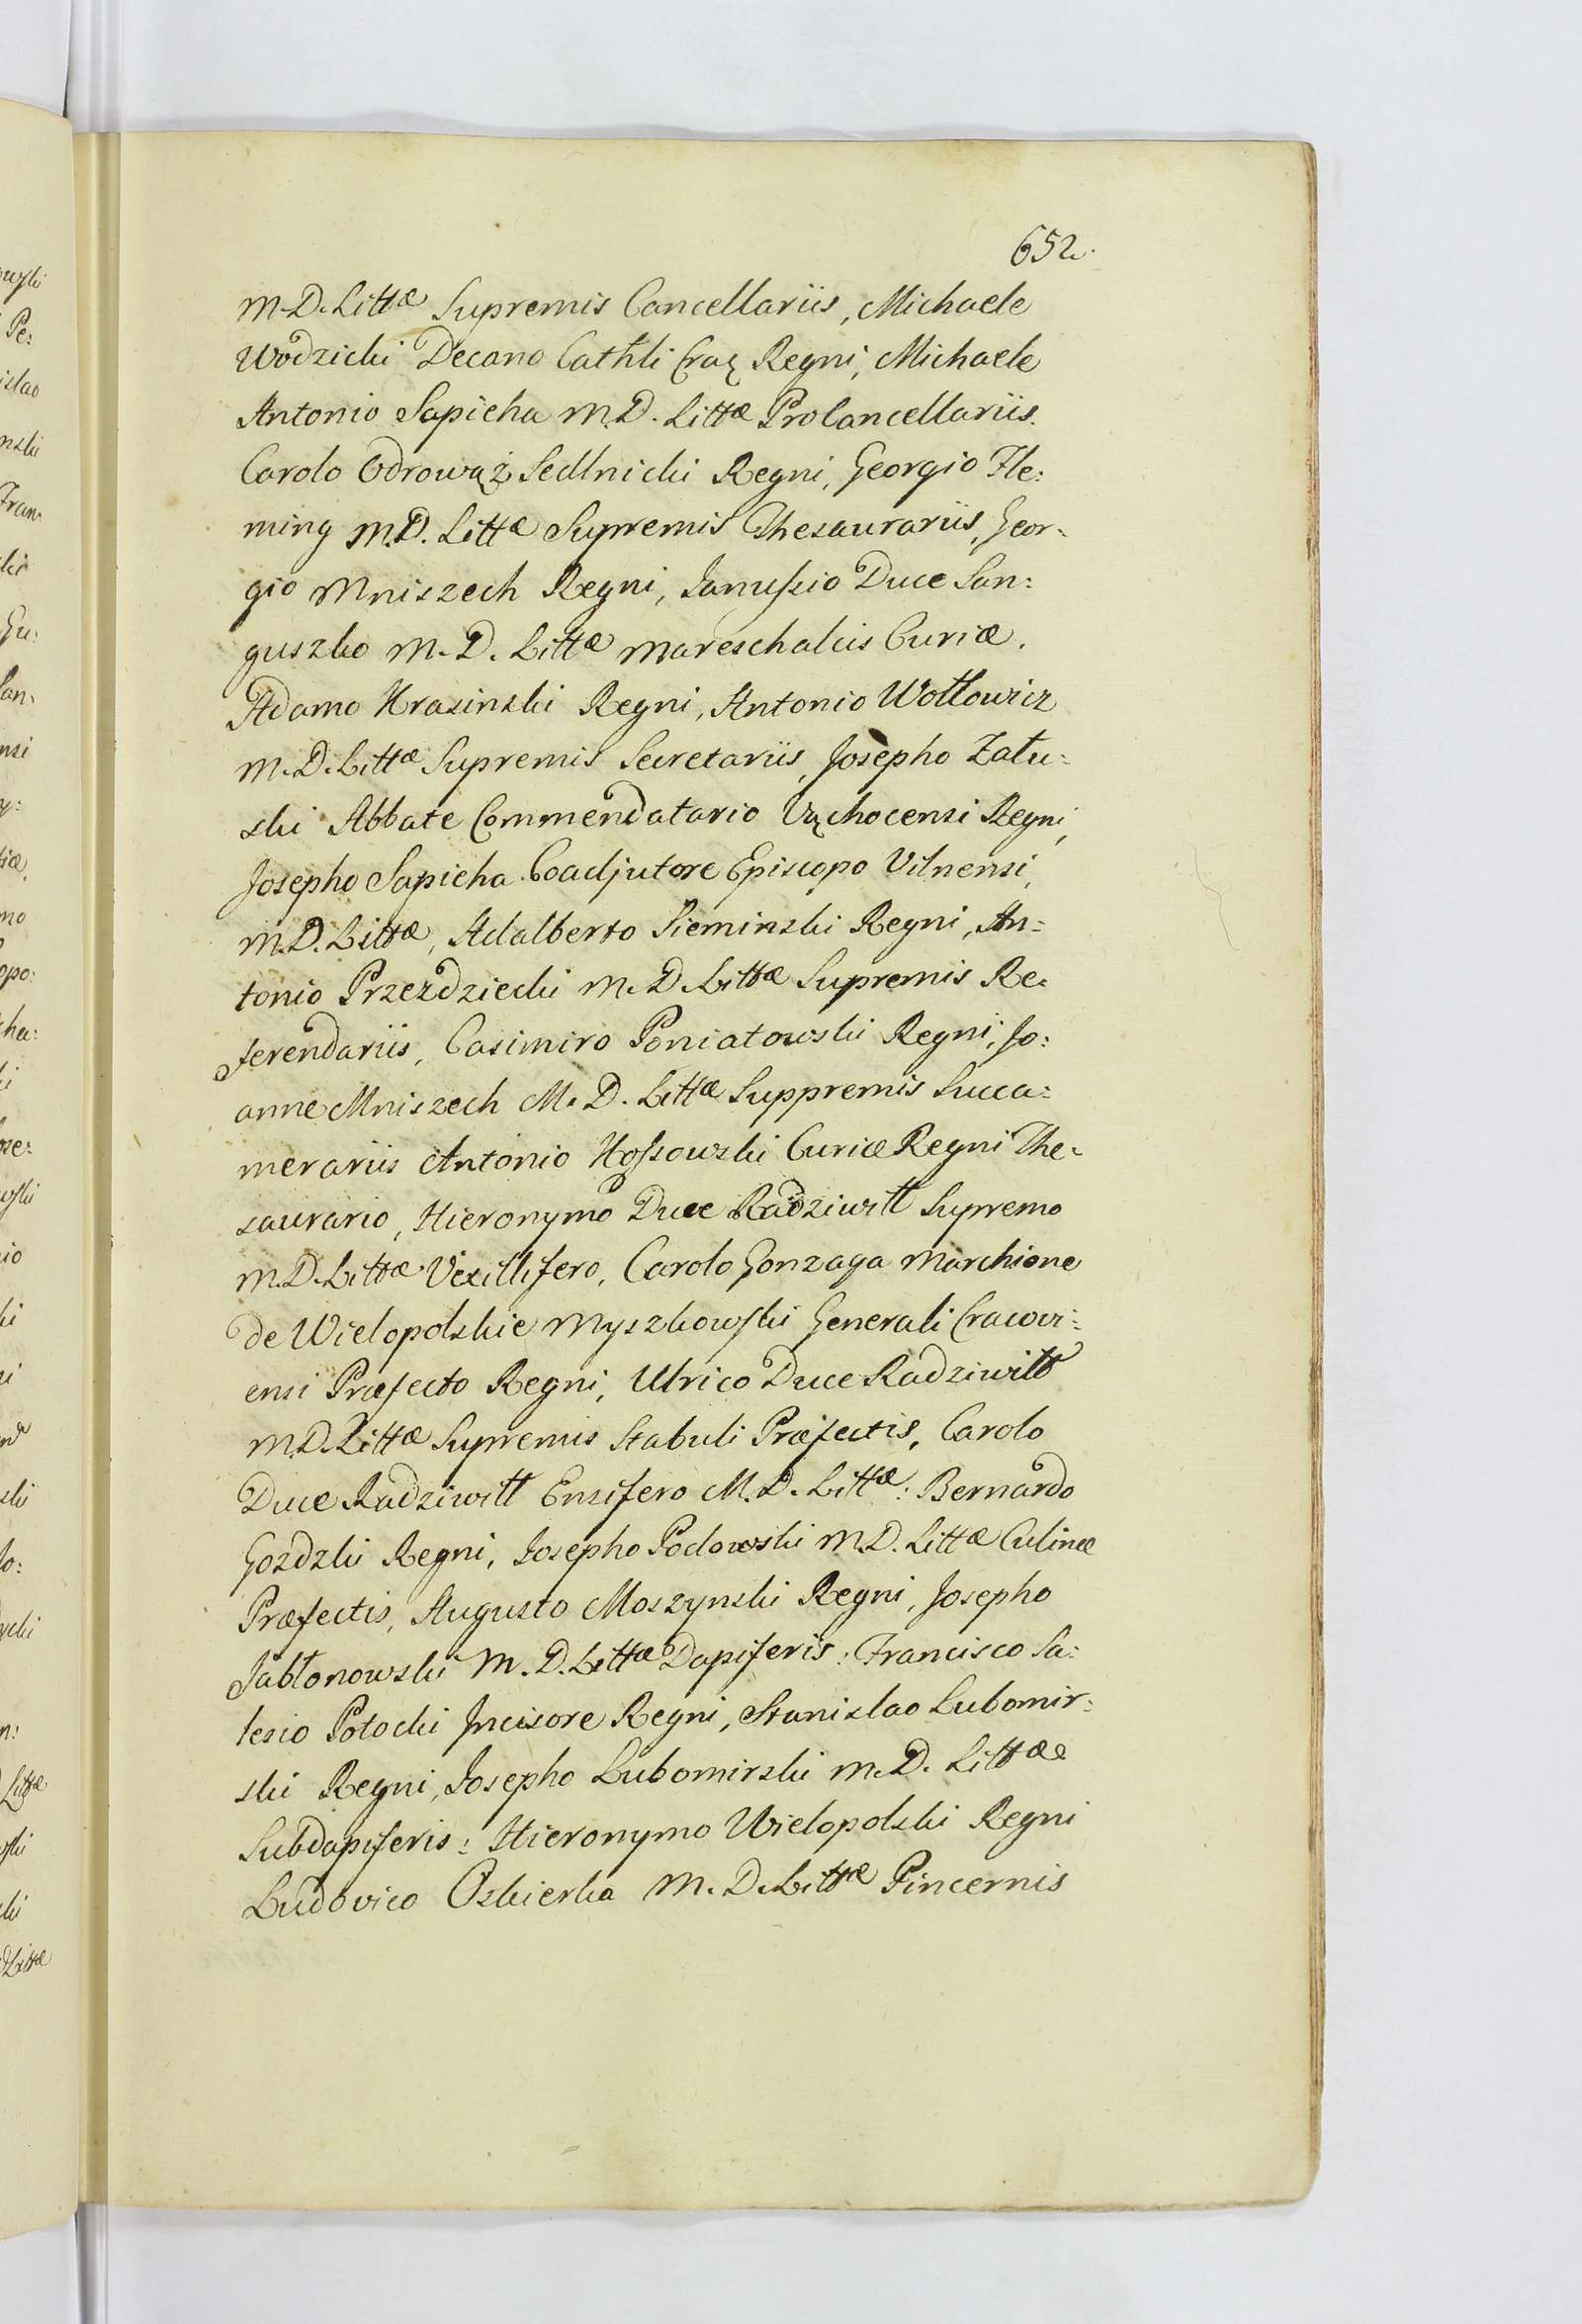 652.
M.D. Littæ Supremis Cancellariis, Michaele
Wodzicki Decano Cathli Crac Regni, Michaele
Antonio Sapieha M.D. Littæ ProCancellariis.
Carolo Odrowąż Sedlnicki Regni, Georgio Fle:
ming M.D. Littæ Supremis Thesaurariis, Geor:
gio Mniszech Regni, Janussio Duce San:
guszko M.D. Littæ Mareschalcis Curiæ.
Adamo Krasinski Regni, Antonio Wołłowicz
M.D. Littæ Supremis Secretariis, Josepho Zału:
ski Abbate Commendatario Vąchocensi Regni,
Josepho Sapieha Coadjutore Episcopo Vilnensi,
M.D. Littæ, Adalberto Sieminski Regni, An:
tonio Przezdziecki M.D. Littæ Supremis Re:
ferendariis, Casimiro Poniatowski Regni, Jo:
anne Mniszech M.D. Littæ Suppremis Succa:
merariis Antonio Kossowski Curiæ Regni The:
saurario, Hieronymo Duce Radziwiłł Supremo
M.D. Littæ Vexillifero, Carolo Gonzaga Marchione
de Wielopolskie Myszkowski Generali Cracovi:
ensi Præfecto Regni, Ulrico Duce Radziwiłł
M.D. Littæ Supremis Stabuli Præfectis, Carolo
Duce Radziwiłł Ensifero M.D. Littæ: Bernardo
Gozdzki Regni, Josepho Podowski M.D. Littæ Culinæ
Præfectis, Augusto Moszynski Regni, Josepho
Jabłonowski M.D. Littæ Dapiferis: Francisco Sa:
lesio Potocki Incisore Regni, Stanislao Lubomir:
ski Regni, Josepho Lubomirski M.D. Littæ
Subdapiferis: Hieronymo Wielopolski Regni
Ludovico Oskierka M.D. Littæ Pincernis